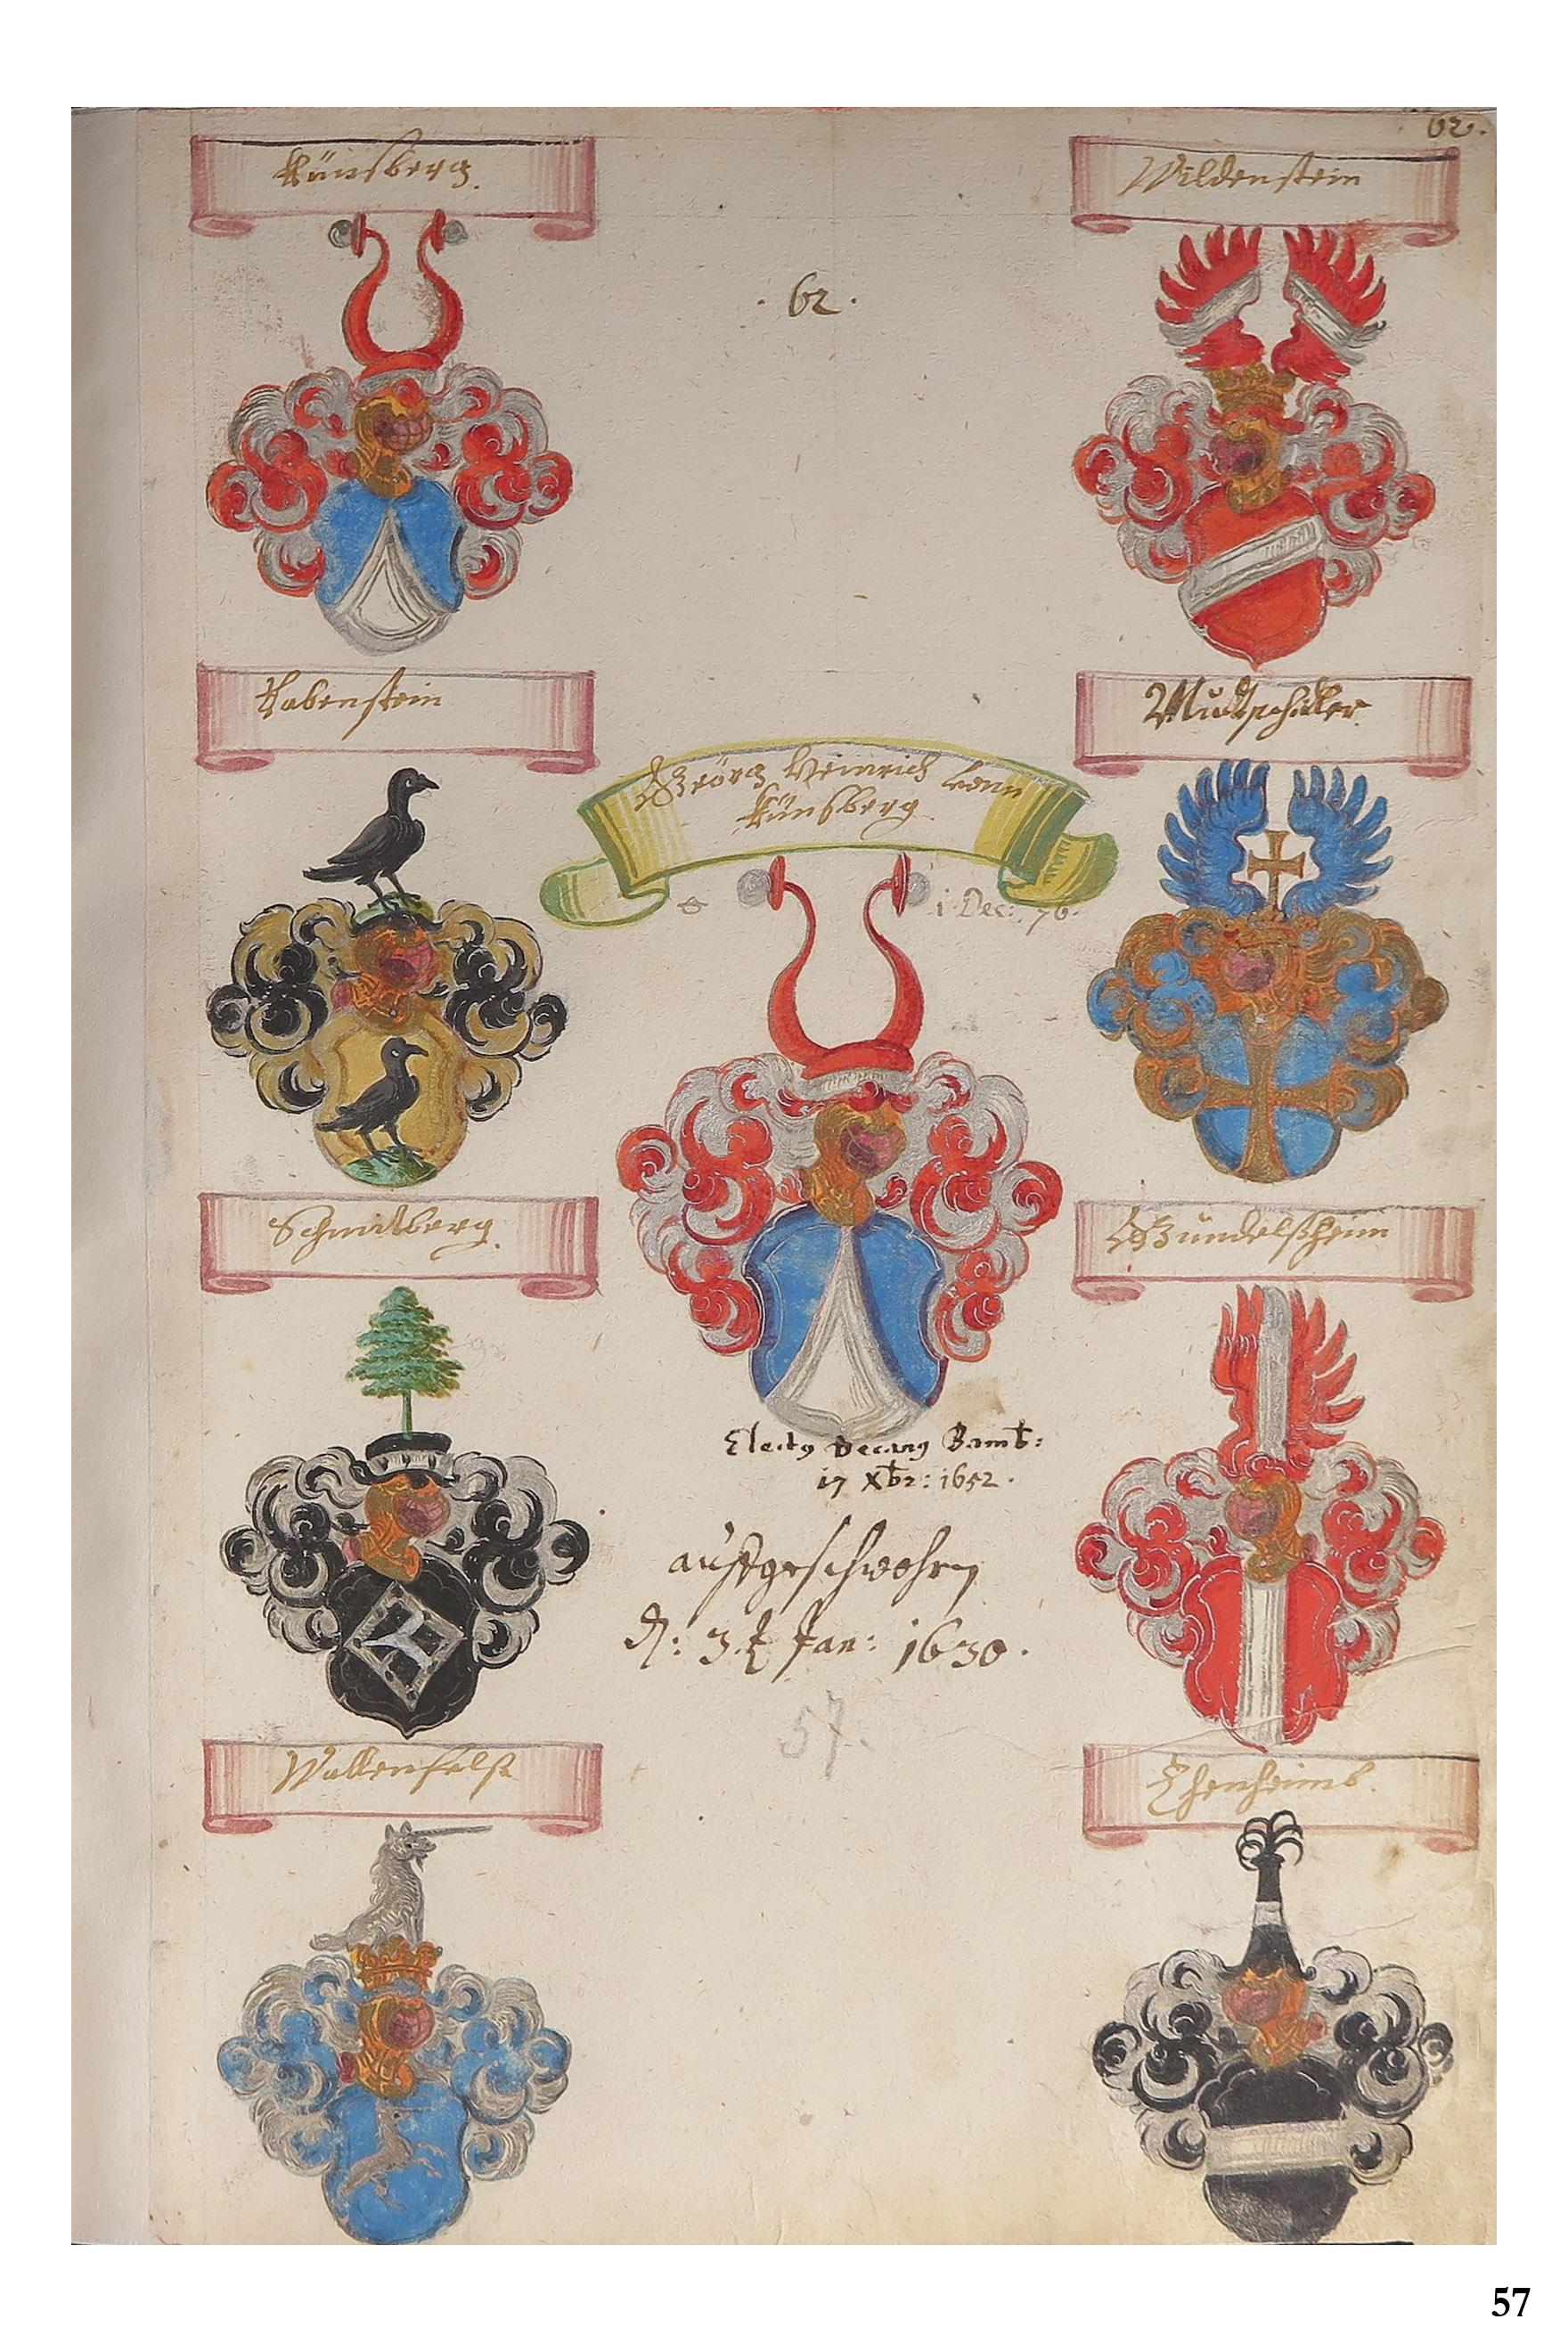 62.
Künsberg.
Wildenstein
. 62 .
Rabenstein
Mudtschidler
Geörg Heinrich vonn
Künsberg
1. Dec: 76.
Schmidberg.
Gundelßheim
Elect9 Decan9 Bamb:
17 Xbr: 1652.
auffgeschwohren
d: 31 Jan: 1630.
57.
Wallenfelß
Ehenheimb.
57